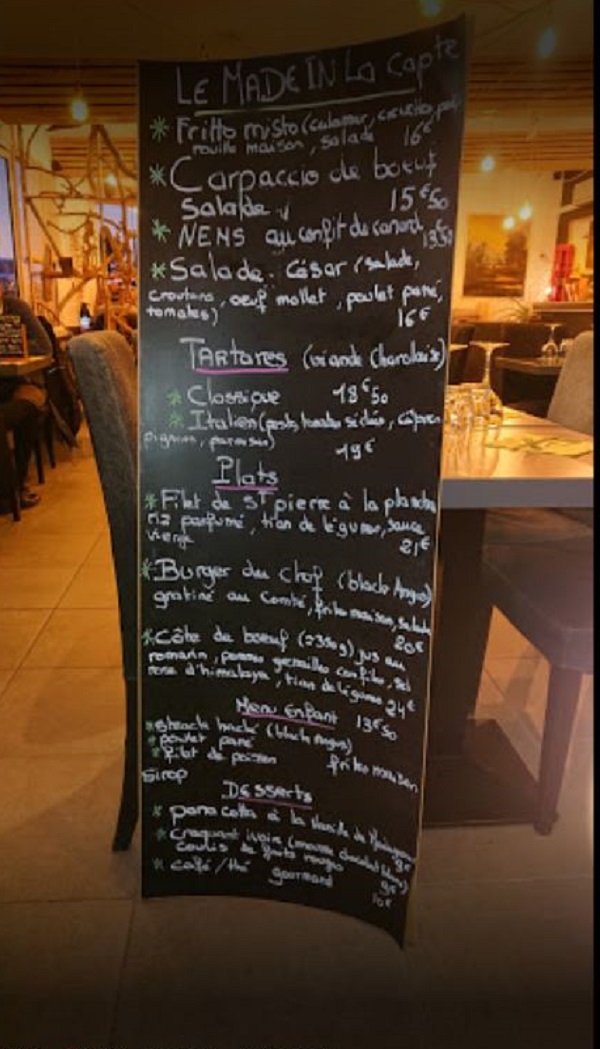 LE MADE IN La Capte
* Fritto misto (calamar, crevettes,
rouille maison, salade 16€
* Carpaccio de boeuf
Salade 15€50
* NEMS au confit de canard 13€50
* Salade César (salade,
croutons, oeuf mollet, poulet pané,
tomates) 16€
TARTARES (viande Charollaise)
* Classique 18€50
* Italien (pesto, tomates séchées, câpres
pignon, parmesan) 19€
Plats
* Filet de St pierre à la plancha
riz parfumé, tian de légumes, sauce
vierge 21€
* Burger du chef (black Angus)
gratiné au Comté, frites maison, salade
20€
* Côte de boeuf (≈350g) jus au
romarin, pommes grenailles confites, sel
rose d'himalaya, tian de légumes 24€
Menu Enfant 13€50
* steack haché (black Angus)
* poulet pané
* filet de poisson frites maison
Sirop
Desserts
* pana cotta à la Vanille de Madagascar
9€
* craquant ivoire (mousse chocolat blanc)
coulis de fruits rouges 9€
* café/thé gourmand
10€